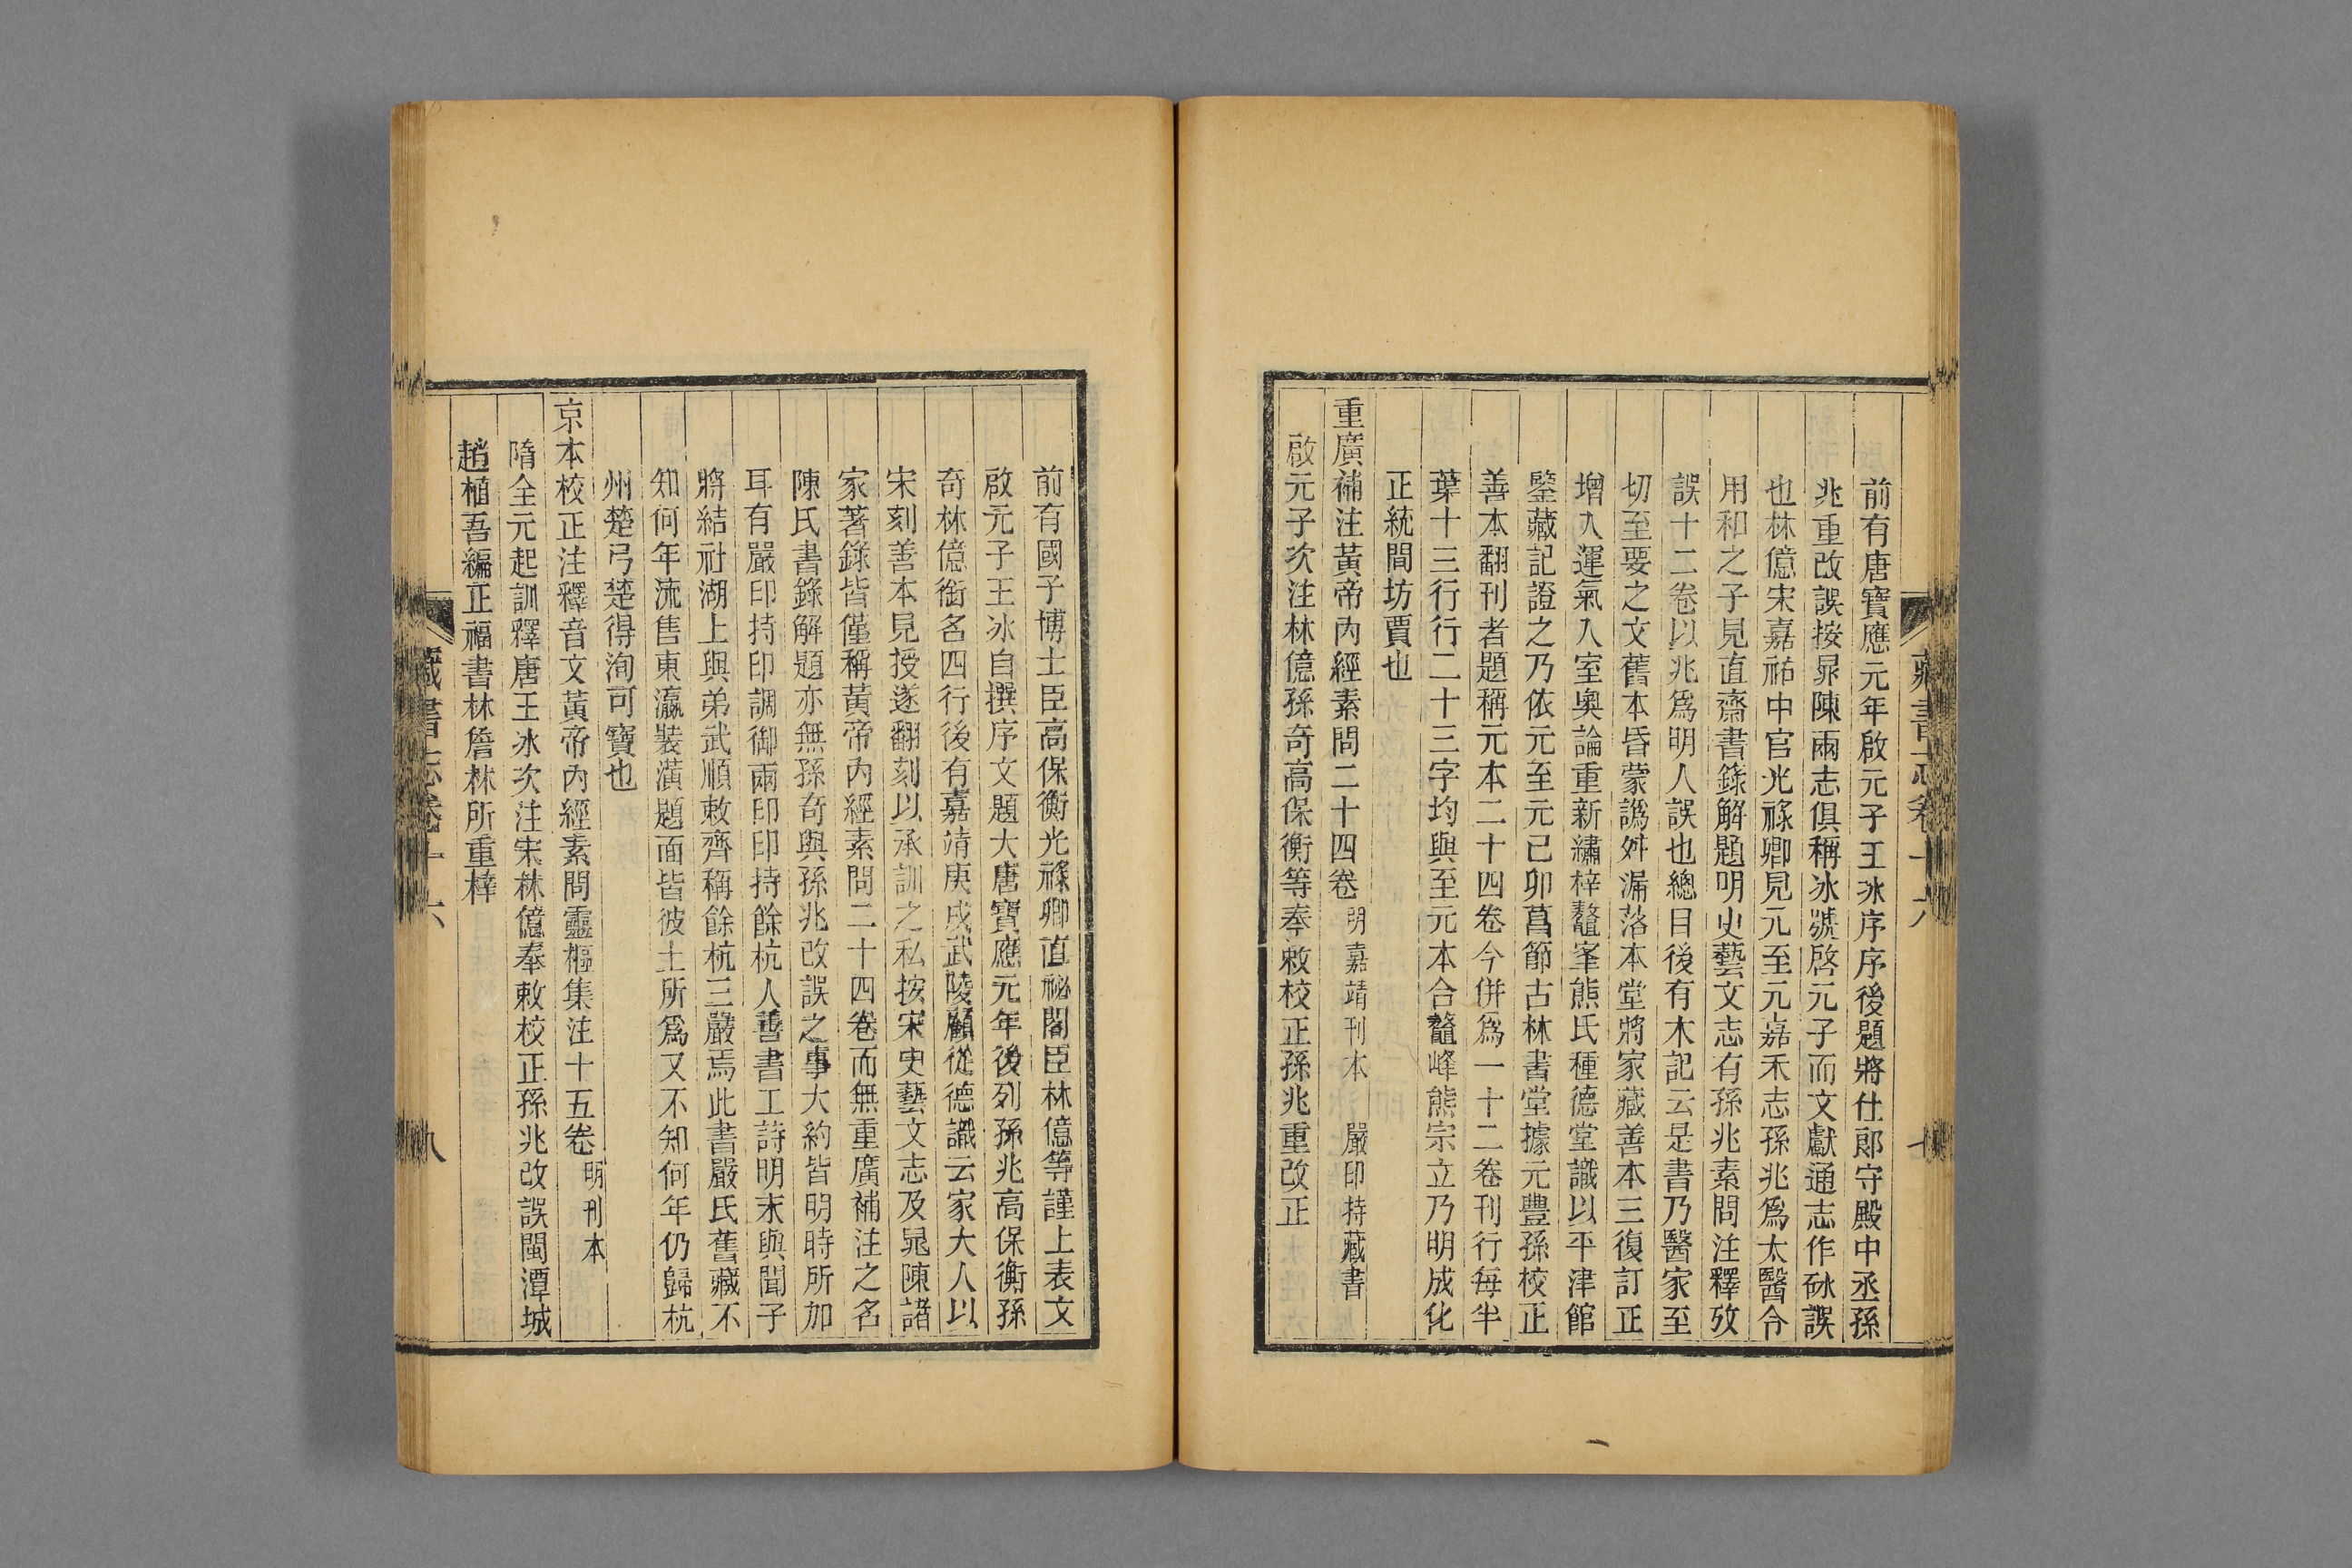 藏書志卷十六
七
前有唐寶應元年啟元子王冰序序後題將仕郎守殿中丞孫
兆重改誤按晁陳兩志俱稱冰號啓元子而文獻通志作砅誤
也林億宋嘉祐中官光祿卿見元至元嘉禾志孫兆爲太醫令
用和之子見直齋書錄解題明史藝文志有孫兆素問注釋攷
誤十二卷以兆爲明人誤也總目後有木記云是書乃醫家至
切至要之文舊本昏蒙譌舛漏落本堂將家藏善本三復訂正
增入運氣入室奧論重新繡梓鼇峯熊氏種德堂識以平津館
鑒藏記證之乃依元至元己卯菖節古林書堂據元豐孫校正
善本翻刊者題稱元本二十四卷今併爲一十二卷刊行每半
葉十三行行二十三字均與至元本合鼇峰熊宗立乃明成化
正統間坊賈也
重廣補注黃帝內經素問二十四卷 明嘉靖刊本 嚴印持藏書
啟元子次注林億孫奇高保衡等奉敕校正孫兆重改正
前有國子博士臣高保衡光祿卿直祕閣臣林億等謹上表文
啟元子王冰自撰序文題大唐寶應元年後列孫兆高保衡孫
奇林億銜名四行後有嘉靖庚戌武陵顧從德識云家大人以
宋刻善本見授遂翻刻以承訓之私按宋史藝文志及晁陳諸
家著錄皆僅稱黃帝內經素問二十四卷而無重廣補注之名
陳氏書錄解題亦無孫奇與孫兆改誤之事大約皆明時所加
耳有嚴印持印調御兩印印持餘杭人善書工詩明末與聞子
將結社湖上與弟武順敕齊稱餘杭三嚴焉此書嚴氏舊藏不
知何年流售東瀛裝潢題面皆彼土所爲又不知何年仍歸杭
州楚弓楚得洵可寶也
京本校正注釋音文黃帝內經素問靈樞集注十五卷 明刊本
隋全元起訓釋唐王冰次注宋林億奉敕校正孫兆改誤閩潭城
趙植吾編正福書林詹林所重梓
藏書志卷十六
八